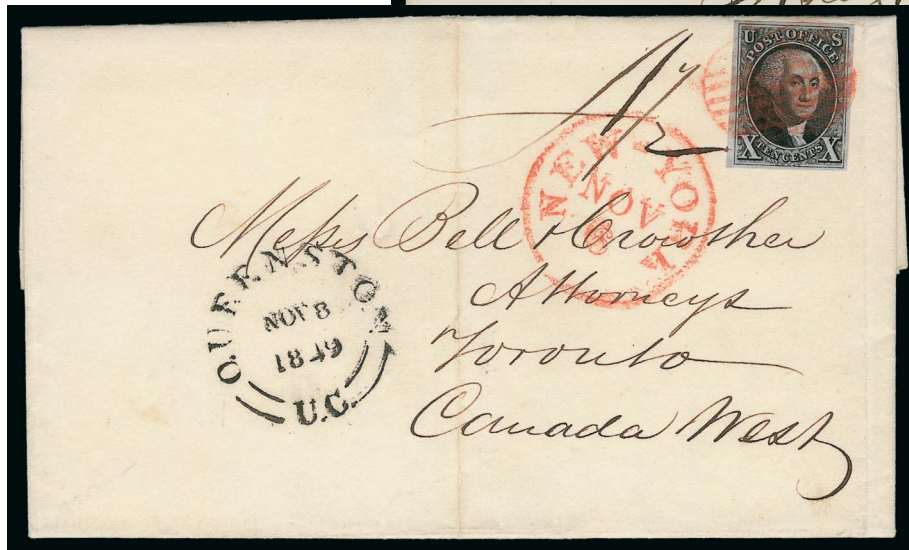 U S
POST OFFICE
X TEN CENTS X
1/2
NEW-YORK
NOV
Messrs Bell & Crowther
Attorneys
Toronto
Canada West
QUEENSTON
NOV 8
1849
U.C.